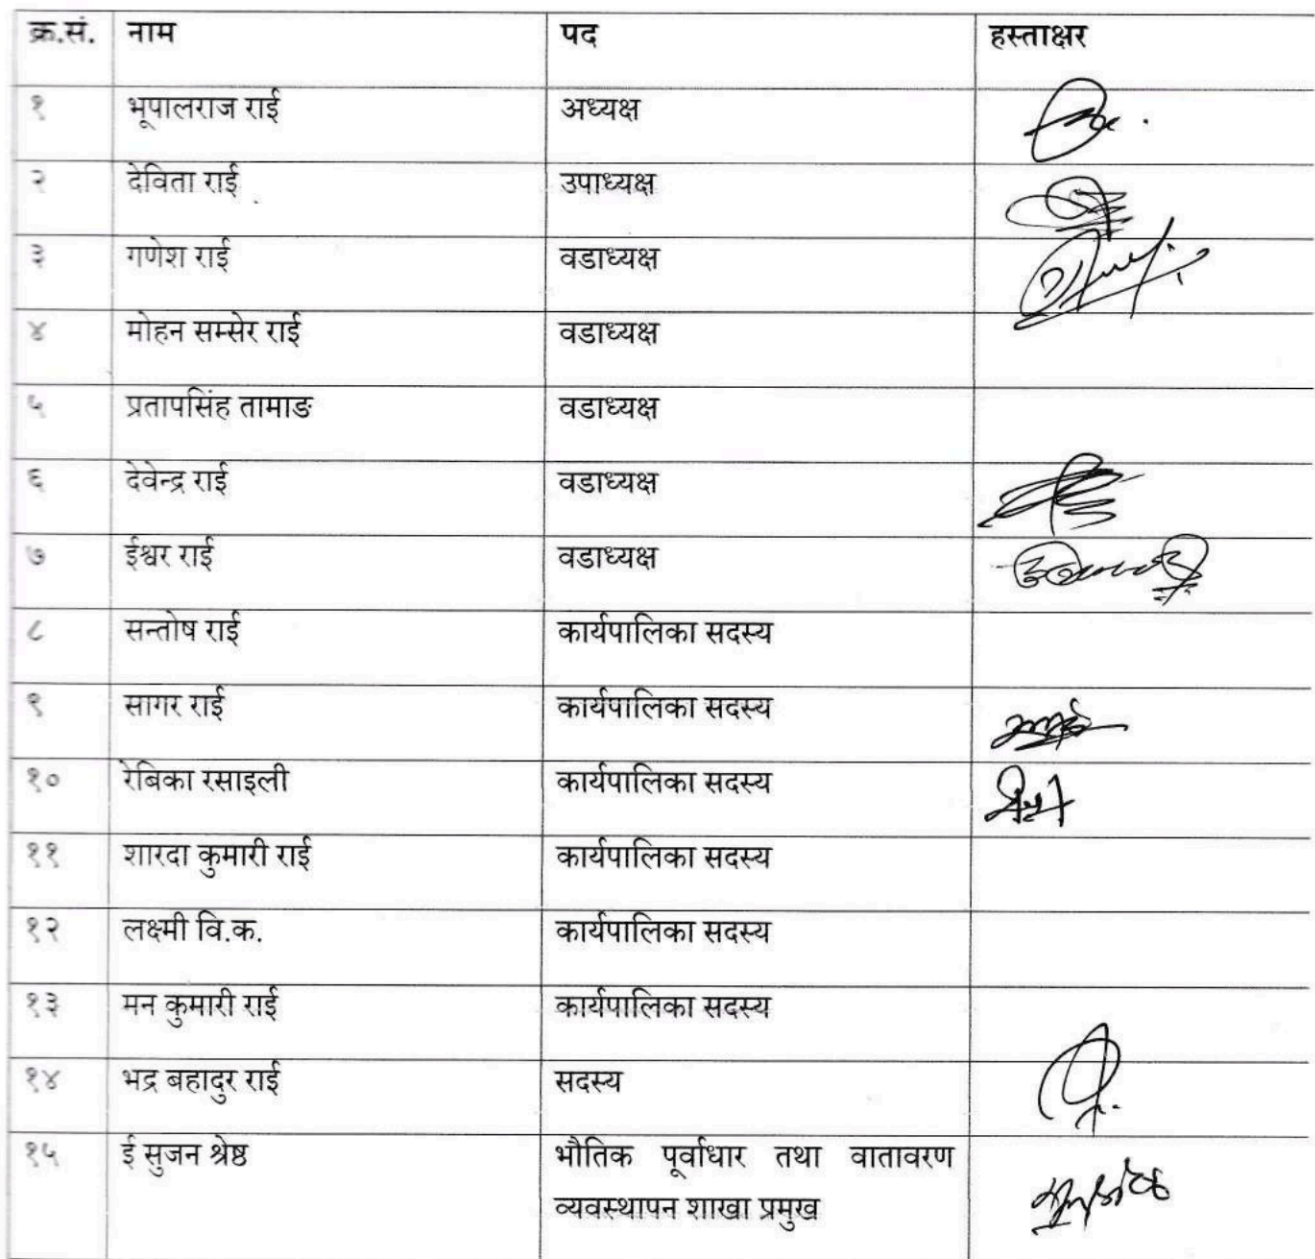 क्र.सं. नाम पद हस्ताक्षर
१ भूपालराज राई अध्यक्ष
२ देविता राई उपाध्यक्ष
३ गणेश राई वडाध्यक्ष
४ मोहन सम्सेर राई वडाध्यक्ष
५ प्रतापसिंह तामाङ वडाध्यक्ष
६ देवेन्द्र राई वडाध्यक्ष
७ ईश्वर राई वडाध्यक्ष
८ सन्तोष राई कार्यपालिका सदस्य
९ सागर राई कार्यपालिका सदस्य
१० रेबिका रसाइली कार्यपालिका सदस्य
११ शारदा कुमारी राई कार्यपालिका सदस्य
१२ लक्ष्मी वि.क. कार्यपालिका सदस्य
१३ मन कुमारी राई कार्यपालिका सदस्य
१४ भद्र बहादुर राई सदस्य
१५ ई सुजन श्रेष्ठ भौतिक पूर्वाधार तथा वातावरण
व्यवस्थापन शाखा प्रमुख